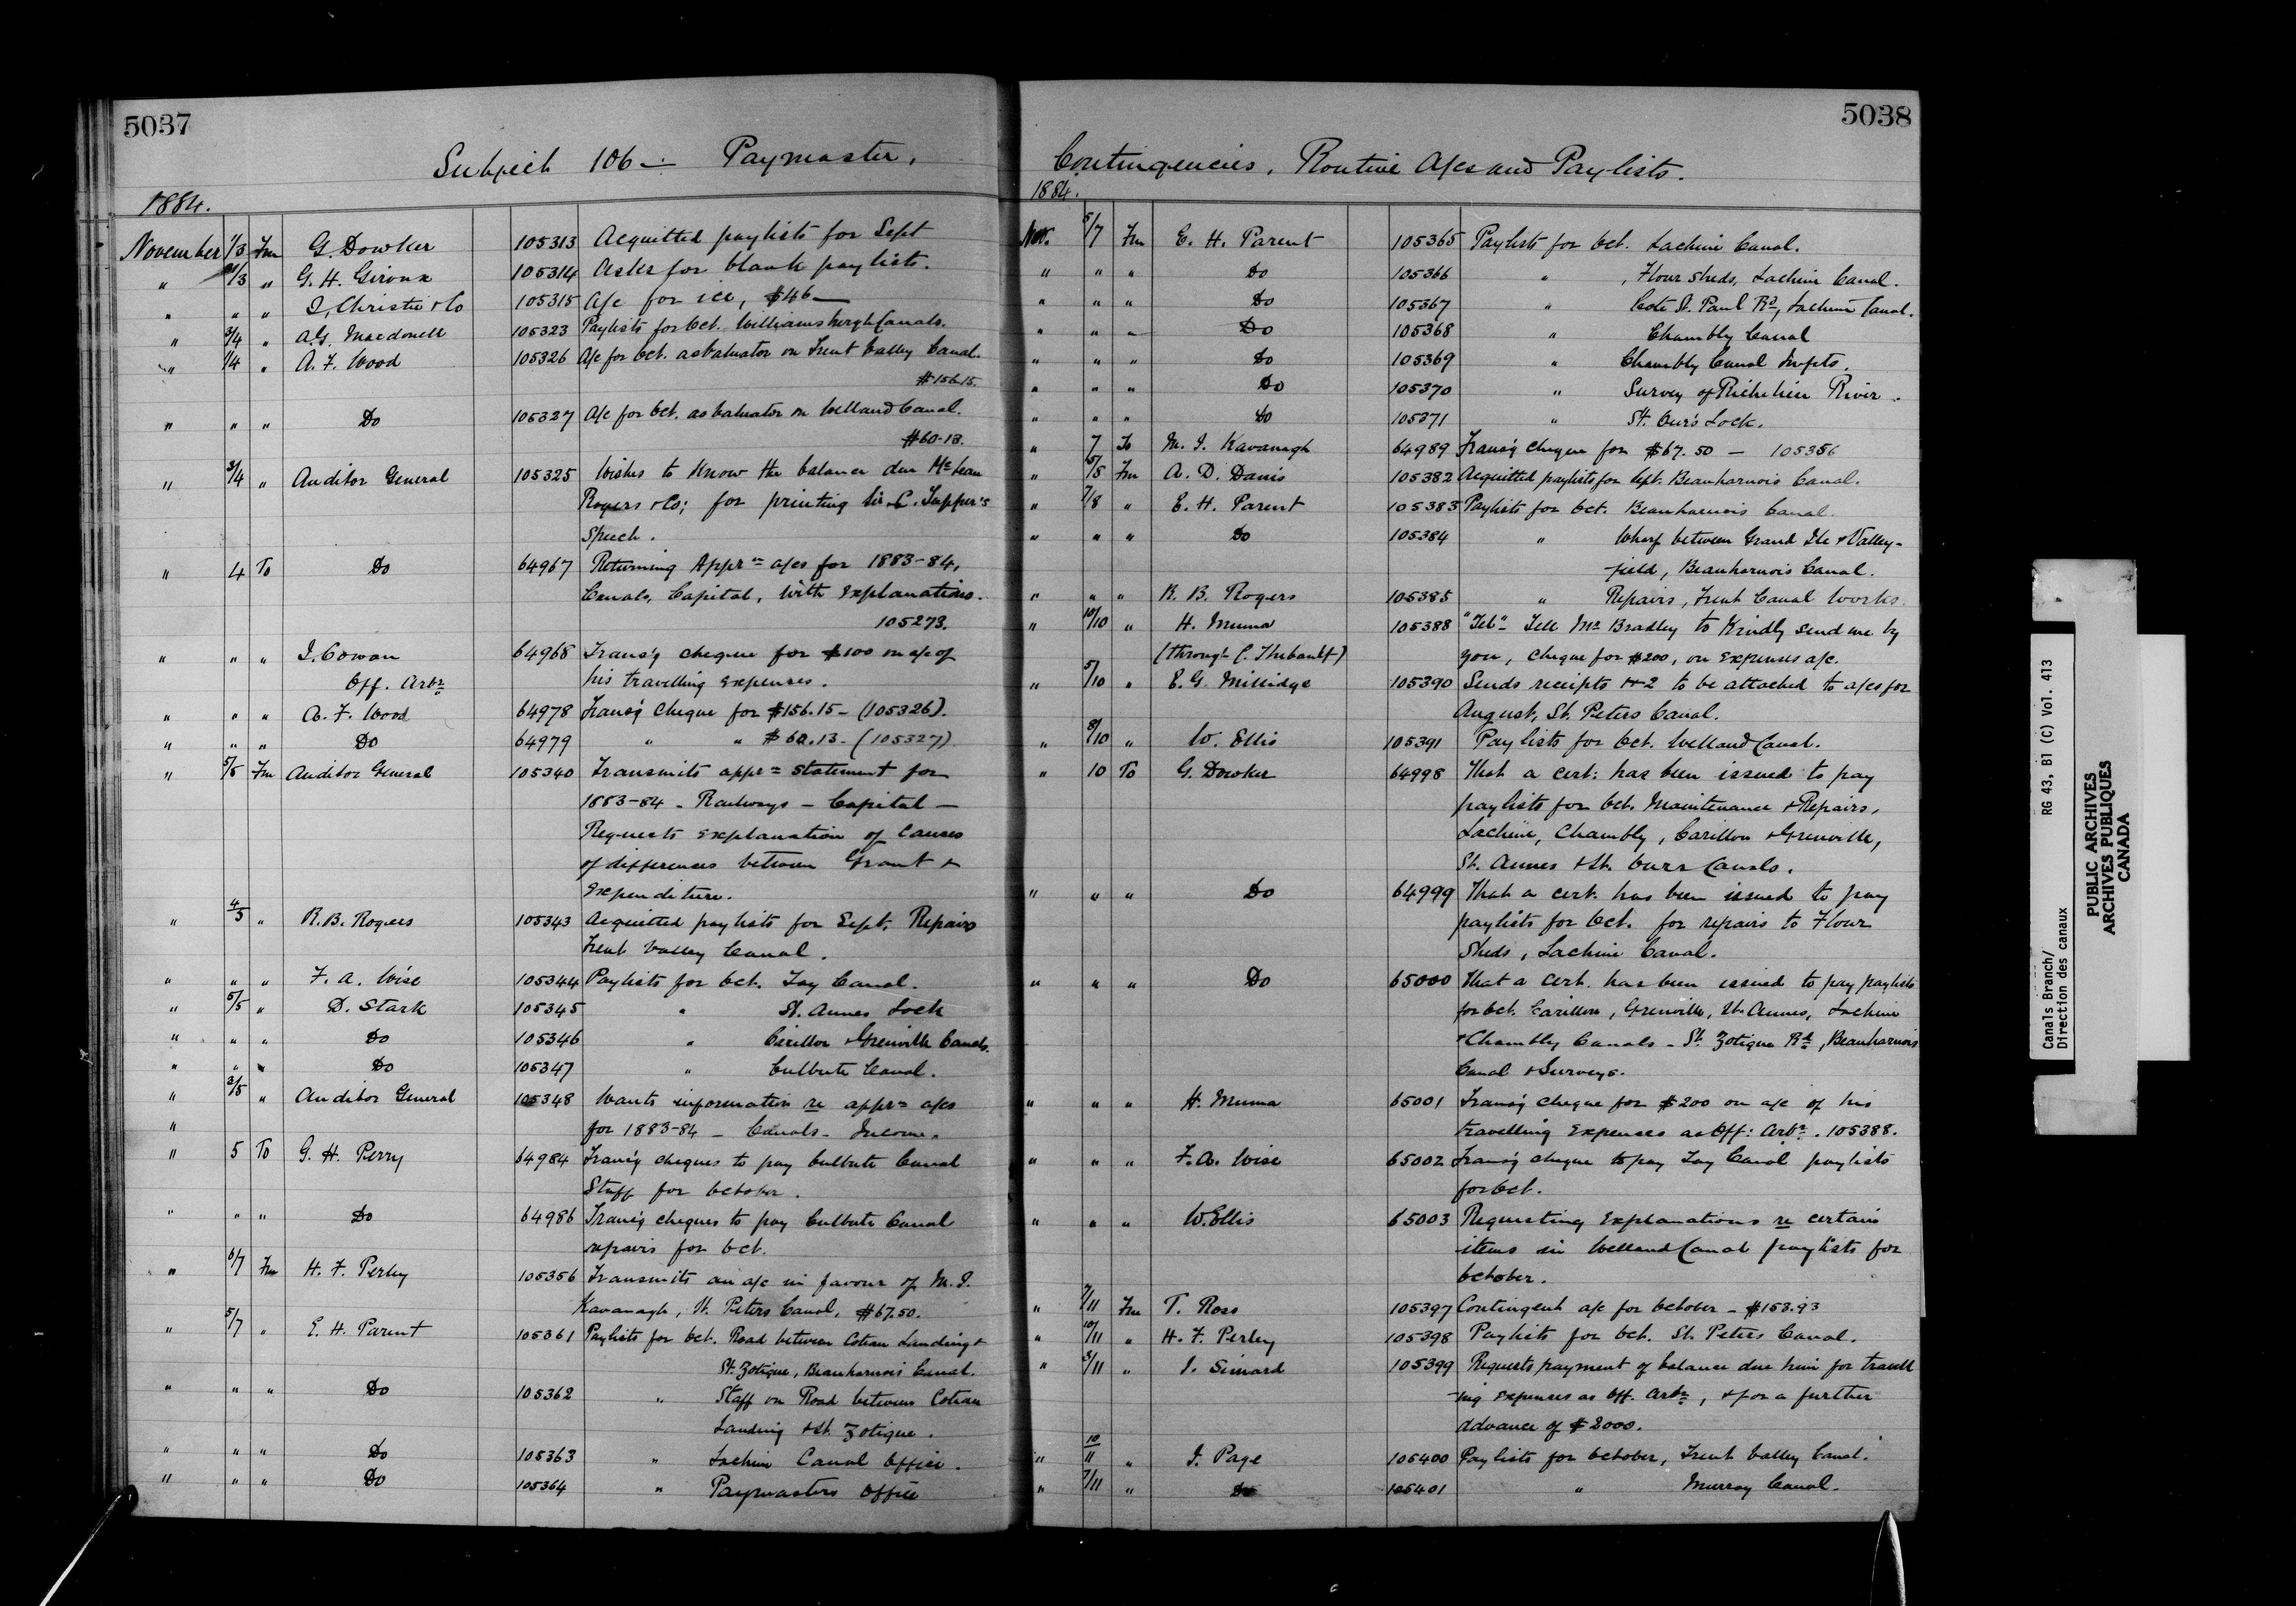 5037
Subject 106 — Paymaster,
1884.
November 1/3 Fm G. Dowker 105313 Acquitted paylists for Sept
" 31/3 " G. H. Giroux 105314 Asks for blank paylists.
" " " J. Christie & Co 105315 A/c for ice, $46 —
" 3/4 " A.G. Macdonell 105323 Paylists for Oct. Williamsburgh Canals.
" 1/4 " A. F. Wood 105326 A/c for Oct. as Valuator on Trent Valley Canal.
$156.15.
" " " Do 105327 A/c for Oct. as Valuator on Welland Canal.
$60.13.
" 3/4 " Auditor General 105325 Wishes to know the balance due McLean
Rogers & Co; for printing Sir C. Tupper's
Speech.
" 4 To Do 64967 Returning Apprn a/cs for 1883-84,
Canals, Capital, with explanations.
105273.
" " " J. Cowan 64968 Trans'g cheque for $100 on a/c of
Off. Arbr his travelling expenses.
" " " A. F. Wood 64978 Trans'g Cheque for $156.15 - (105326).
" " " Do 64979 " " $60.13 - (105327).
" 5/5 Fm Auditor General 105340 Transmits apprn statement for
1883-84 - Railways - Capital -
Requests explanation of causes
of differences between Grant &
Expenditure.
" 4/5 " R.B. Rogers 105343 Acquitted paylists for Sept. Repairs
Trent Valley Canal.
" " " F. A. Wise 105344 Paylists for Oct. Tay Canal.
" 5/5 " D. Stark 105345 " St. Annes Lock
" " " Do 105346 " Carillon & Grenville Canals.
" " " Do 105347 " Culbute Canal.
" 3/5 " Auditor General 105348 Wants information re apprn a/cs
" for 1883-84 - Canals - Income.
" 5 To G. H. Perry 64984 Trans'g cheques to pay Culbute Canal
Staff for October.
" " " Do 64986 Trans'g cheques to pay Culbute Canal
repairs for Oct.
" 6/7 Fm H. F. Perley 105356 Transmits an a/c in favour of M. J.
Kavanagh, St. Peters Canal, $67.50.
" 5/7 " E. H. Parent 105361 Paylists for Oct. Road between Coteau Landing &
St. Zotique, Beauharnois Canal.
" " " Do 105362 " Staff on Road between Coteau
Landing & St. Zotique.
" " " Do 105363 " Lachine Canal Office.
" " " Do 105364 " Paymasters Office
5038
Contingencies, Routine A/cs and Paylists.
1884.
Nov. 5/7 Fm E. H. Parent 105365 Paylists for Oct. Lachine Canal.
" " " Do 105366 " , Flour Sheds, Lachine Canal.
" " " Do 105367 " Cote St. Paul Rd, Lachine Canal.
" " " Do 105368 " Chambly Canal
" " " Do 105369 " Chambly Canal Impts.
" " " Do 105370 " Survey of Richelieu River.
" " " Do 105371 " St. Our's Lock.
" 7 To M. J. Kavanagh 64989 Trans'g cheque for $67.50 — 105356
" 5/8 Fm A. D. Danis 105382 Acquitted paylists for Sept. Beauharnois Canal.
" 7/8 " E. H. Parent 105383 Paylists for Oct. Beauharnois Canal.
" " " Do 105384 " Wharf between Grand Ile & Valley-
field, Beauharnois Canal.
" " " R. B. Rogers 105385 " Repairs, Trent Canal Works.
" 10/10 " H. Muma 105388 "Tel" - Tell Mr Bradley to kindly send me by
(through C. Thibault) you, cheque for $200, on expenses a/c.
" 5/10 " E. G. Millidge 105390 Sends receipts 1 & 2 to be attached to a/cs for
August, St. Peters Canal.
" 8/10 " W. Ellis 105391 Paylists for Oct. Welland Canal.
" 10 To G. Dowker 64998 That a cert: has been issued to pay
paylists for Oct. Maintenance & Repairs,
Lachine, Chambly, Carillon & Grenville,
St. Annes & St. Ours Canals.
" " " Do 64999 That a cert. has been issued to pay
paylists for Oct. for repairs to Flour
Sheds, Lachine Canal.
" " " Do 65000 That a cert. has been issued to pay paylists
for Oct. Carillon, Grenville, St. Annes, Lachine
& Chambly Canals - St. Zotique Rd, Beauharnois
Canal & Surveys.
" " " H. Muma 65001 Trans'g cheque for $200 on a/c of his
travelling expenses as Off: Arbr. 105388.
" " " F. A. Wise 65002 Trans'g cheque to pay Tay Canal paylists
for Oct.
" " " W. Ellis 65003 Requesting explanations re certain
items in Welland Canal paylists for
October.
" 7/11 Fm T. Ross 105397 Contingent a/c for October - $153.93
" 10/11 " H. F. Perley 105398 Paylists for Oct. St. Peters Canal.
" 5/11 " J. Simard 105399 Requests payment of balance due him for travell
-ing expenses as Off. Arbr, & for a further
advance of $2000.
" 10/11 " J. Page 105400 Paylists for October, Trent Valley Canal.
" 7/11 " Do 105401 " Murray Canal.
Canals Branch/ RG 43, B1 (C) Vol. 413
Direction des canaux
PUBLIC ARCHIVES
ARCHIVES PUBLIQUES
CANADA